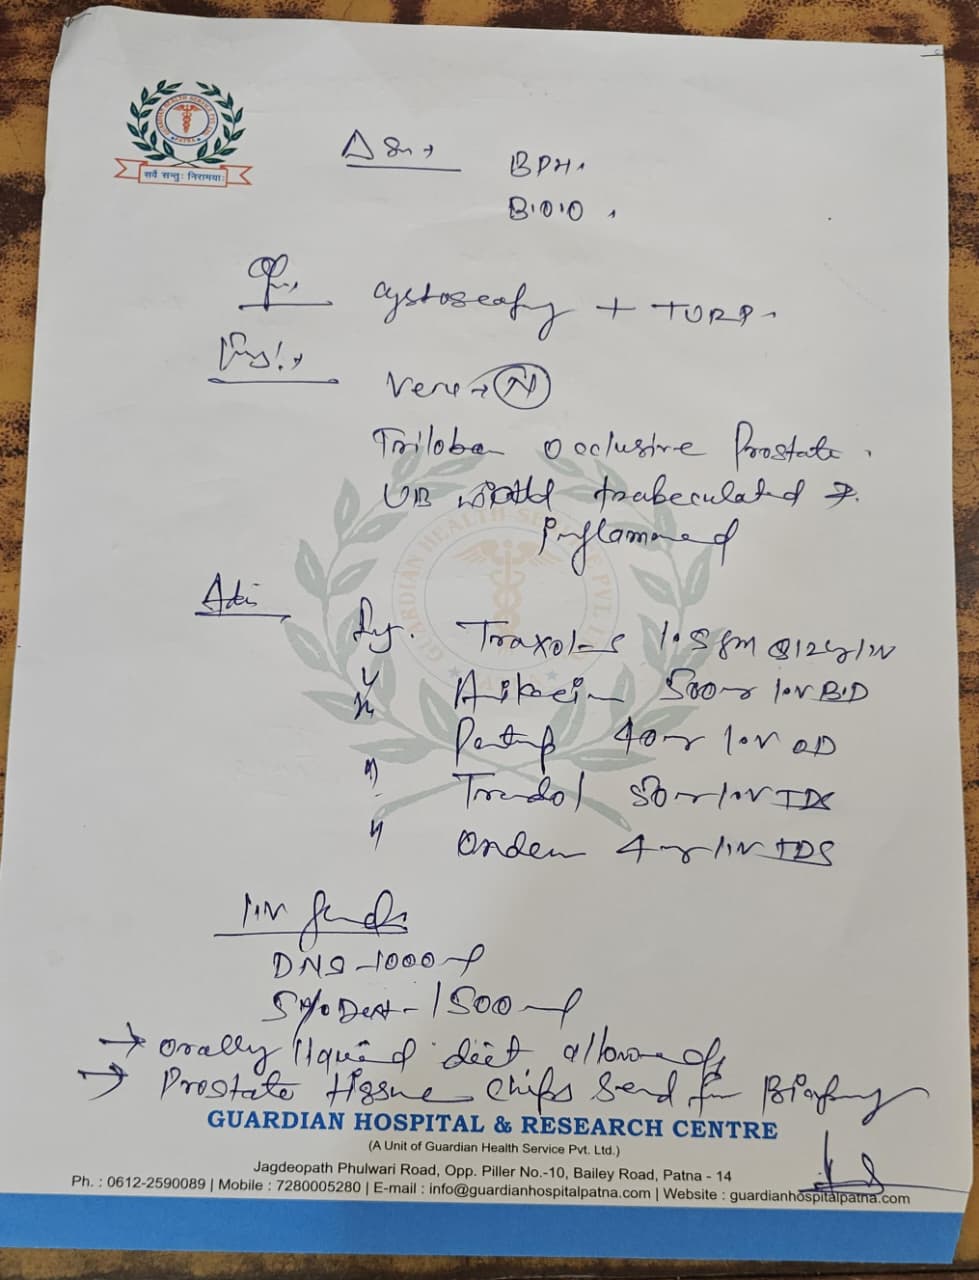 सर्वे सन्तु: निरामया:
BPH.
B.O.O.
Cystoscopy + TURP.
Veru → N
Trilobar occlusive Prostate.
UB trabeculated
Inflammed
Adv
Inj. Traxol-S 1.5gm Q12hr/IV
500mg I.V BD
40mg I.V OD
Tradol 50mg I.V TDS
Ondem 4mg I.V TDS
I.V fluids
DNS - 1000ml
5% Dext - 1500ml
→ Orally liquid diet allowed
→ Prostate tissue chips send for Biopsy
GUARDIAN HOSPITAL & RESEARCH CENTRE
(A Unit of Guardian Health Service Pvt. Ltd.)
Jagdeopath Phulwari Road, Opp. Piller No.-10, Bailey Road, Patna - 14
Ph. : 0612-2590089 | Mobile : 7280005280 | E-mail : info@guardianhospitalpatna.com | Website : guardianhospitalpatna.com